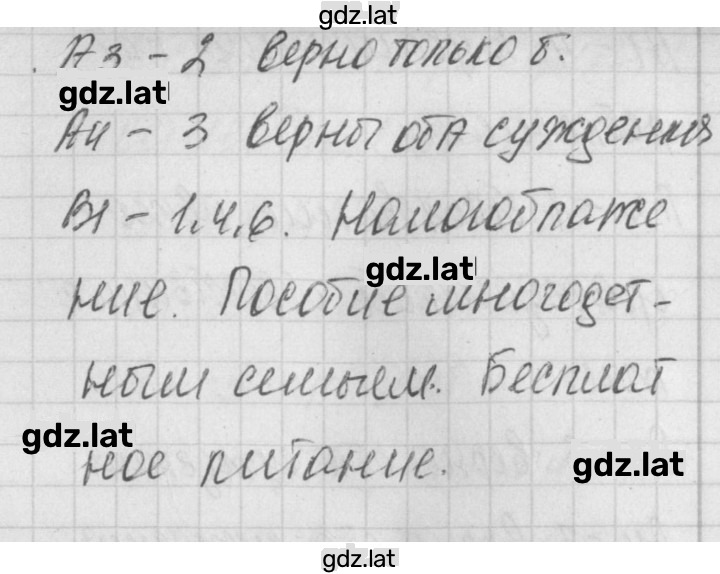 gdz.lat
А3 - 2 верно только б.
gdz.lat
А4 - 3 верны оба суждения
В1 - 1.4.6. Налогооблаже
gdz.lat
ние. Пособие многодет-
ным семьям. Бесплат
gdz.lat
ное питание.
gdz.lat
gdz.lat